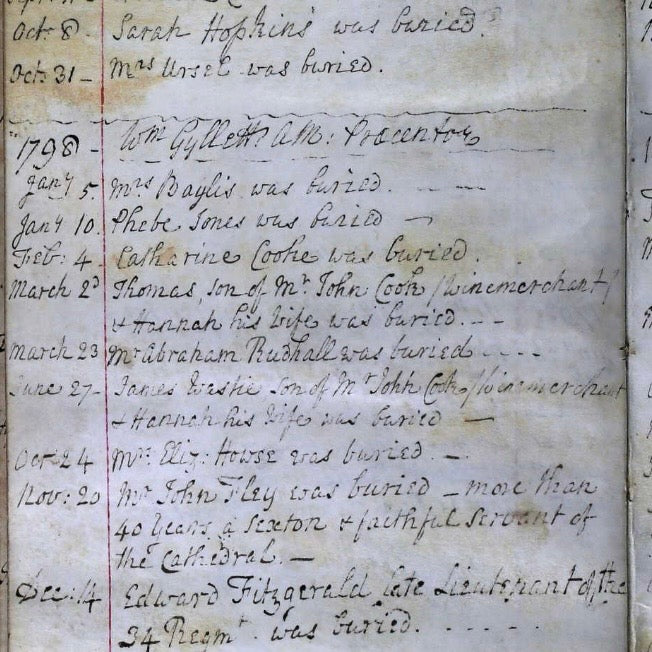 Oct: 8 - Sarah Hopkins was buried.
Oct: 31 - Mrs Ursel was buried.
1798 - Wm Gyllett: AM: Præcentor
Jany 5. Mrs Baylis was buried. - - -
Jany 10. Phebe Jones was buried -
Feb: 4. Catharine Cooke was buried.
March 2d Thomas, son of Mr. John Cook /Winemerchant/
& Hannah his Wife was buried. - - -
March 23 Mr Abraham Rudhall was buried - - - -
June 27 - James Wastie Son of Mr John Cook /Winemerchant
& Hannah his Wife was buried -
Oct 24 Mrs: Eliz: Howse was buried. -
Nov: 20 Mr John Fley was buried - more than
40 Years a Sexton & faithful Servant of
the Cathedral. -
Dec: 14 Edward Fitzgerald late Lieutenant of the
34 Regmt. was buried. - - - - -